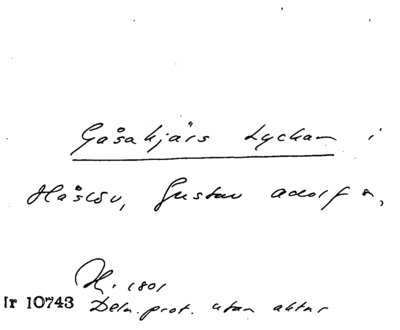 Gåsakjärs Lyckan i
Håslöv, Gustav Adolf s,
H. 1801
Ir 10743 Deln. prot. utan aktnr